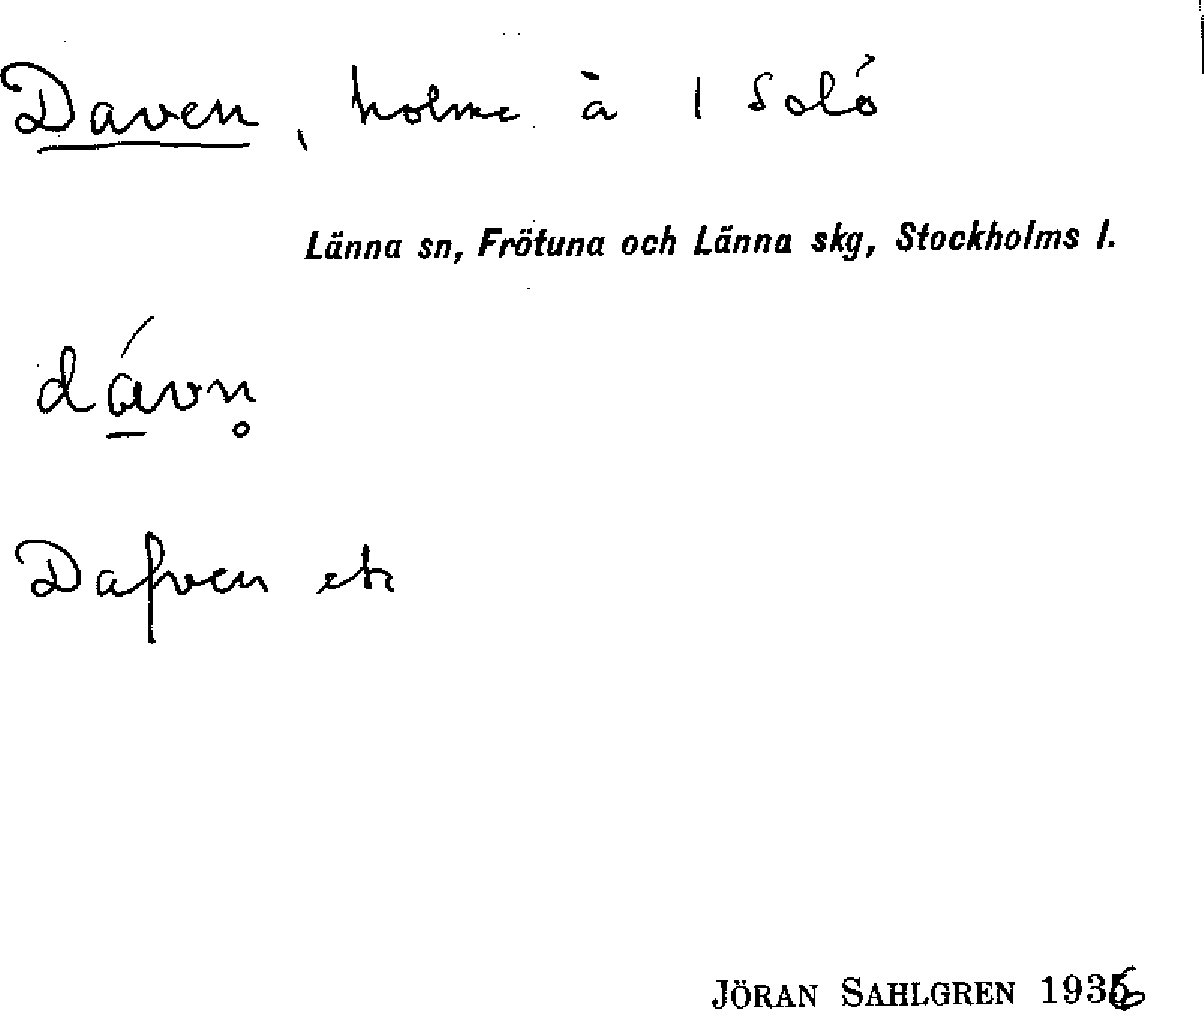 Daven, holme å 1 Solö
Länna sn, Frötuna och Länna skg, Stockholms l.
dávn̥
Dafven ek
JÖRAN SAHLGREN 1936